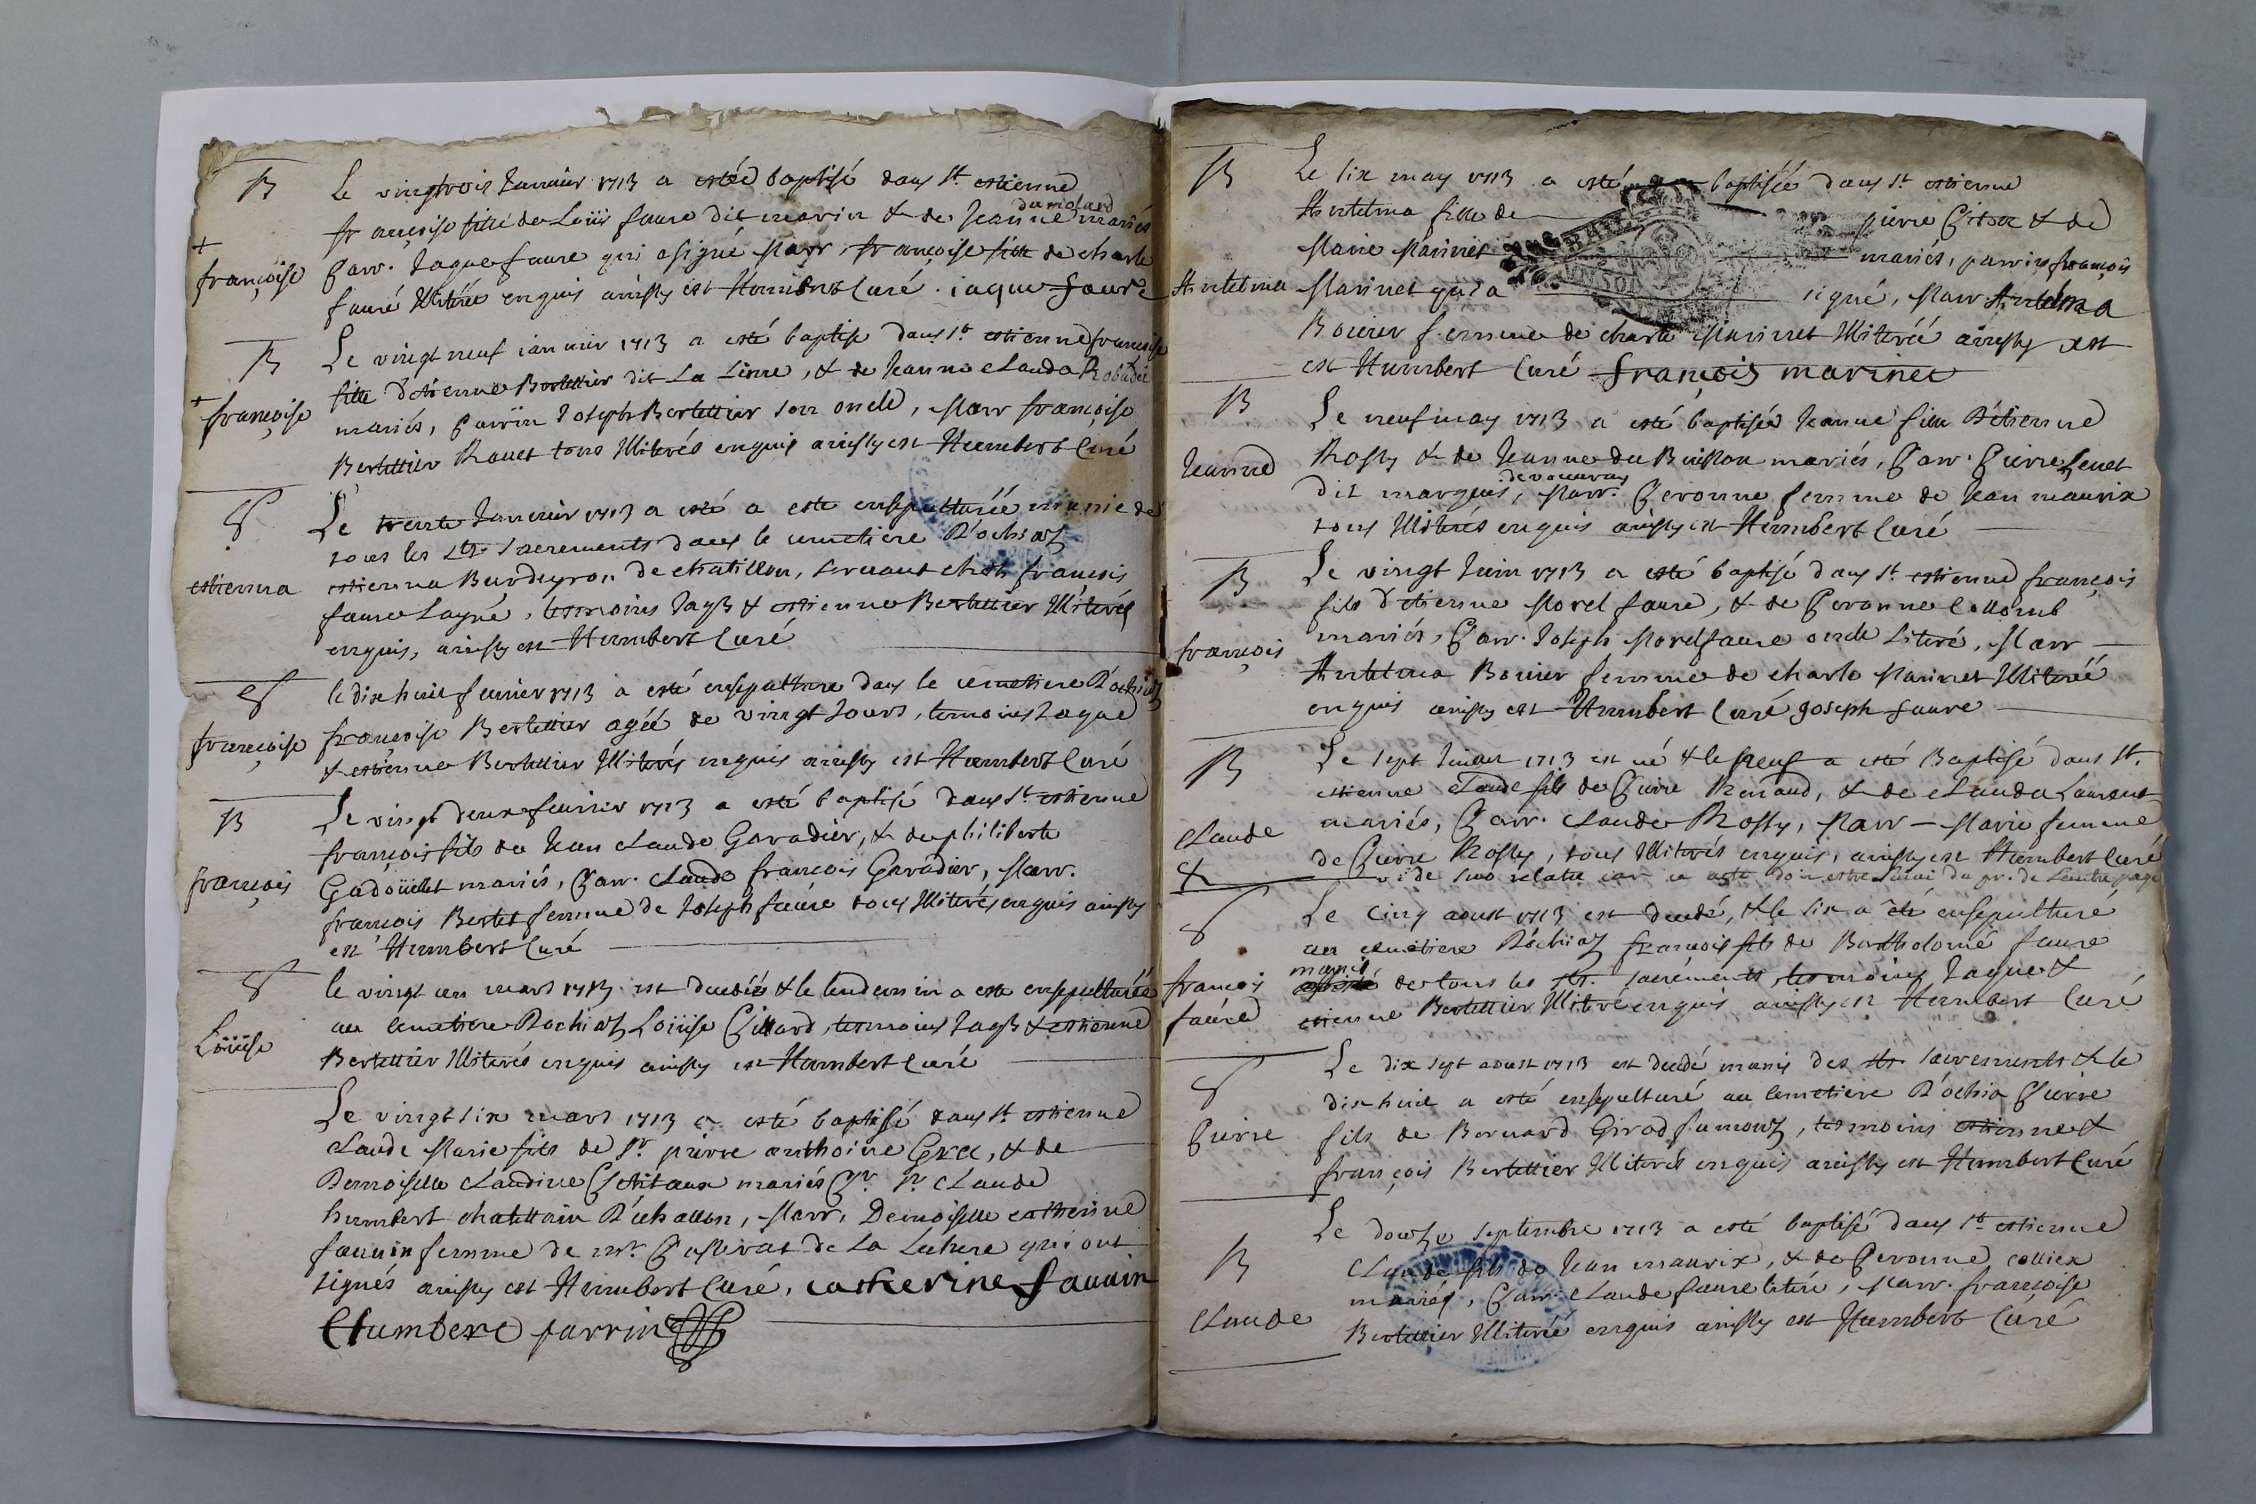 B
Le vingtrois Januier 1713 a estée baptisé dans st. estienne
françoise fille de Loüis faure dit marin & de Jeanne dumolard mariés
+ françoise
parr. Jaque faure qui asigné Marr. françoise fille de charle
fauré illiterée enquis ainsÿ est Humbert Curé. iaque faure
B
Le vingt neuf ianuier 1713 a esté baptisé dans st. estienne françoise
fille d'étienne Bertettier dit La , & de Jeanne Clauda
+ françoise
mariés, parrïn Joseph Bertettier son oncle, Marr françoise
Bertettier Rouet tous illiterés enquis ainsÿ est Humbert Curé
S
Le trente Januier 1713 a esté a esté ensepulturée munie de
tous les sts. sacrements dans le cemetiere d'ochiaz
estienna
estienna Burdeyron de chatillon, seruant chés françois
faure Layné, tesmoins Jaqs & estienne Bertettier illiterés
enquis, ainsÿ est Humbert Curé
S
le dix huit feurier 1713 a esté ensepulture dans le cemetiere d'ochiaz
françoise
françoise Bertettier agéé de vingt Jours, temoins Jaque
& estienne Bertettier illiterés enquis ainsÿ est Humbert Curé
B
Le vingt deux feurier 1713 a esté baptisé dans st. estienne
françois fils de Jean Claude Gavadier, & de philiberte
françois
Gadoüillet mariés, parr. Claude françois Gavadier, Marr.
françois Bertet femme de Joseph faúre tous illiterés enquis ainsÿ
est Humbert Curé
S
le vingt un mars 1713 est decedéé & le lendemin a esté ensepulturéé
Loüise
au cemetiere Dochiaz Loüise Pittard, tesmoins Jaqs & estienne
Bertettier illiterés enquis ainsÿ est Humbert Curé
Le vingt six mars 1713 a esté baptisé dans st. estienne
Claude Marie fils de Sr. pierre anthoine , & de
Demoiselle Claudine mariés pr. Sr. Claude
humbert chatettain d'échallon, Marr. Demoiselle catherine
fauuin femme de mr. de La qui ont
signés ainsÿ est Humbert Curé, catherine fauuin
CHumbert parrin
B
Le six may 1713 a esté baptiséé dans st. estienne
Anthelma fille de pierre & de
Marie Marinet mariés, parrin françois
Anthelma
Marinet qui a signé, Marr Anthelma
Bouier femme de charle Marinet illiteréé ainsÿ est
est Humbert Curé françois marinet
B
Le neuf may 1713 a esté baptisée Jeanne fille d'étienne
Jeanne
Rossy & de Jeanne du Buisson mariés, parr. pierre
dit marquis, Marr. peronne deuouuray femme de Jean maurix
tous illiterés enquis ainsÿ est Humbert Curé
B
Le vingt Juin 1713 a esté baptisé dans st. estienne françois
fils d'étienne Morel faure, & de peronne Collomb
françois
mariés, parr. Joseph Morel faure oncle Literé, Marr
Anthelma Bouier femme de charle Marinet illiteréé
enquis ainsÿ est Humbert Curé Joseph faure
B
Le sept 1713 est né & le neuf a esté Baptisé dans st.
estienne Claude fils de pierre Renaud, & de Clauda Laurent
Claude
mariés, parr. Claude Rossy, Marr Marie femme
de pierre Rossy, tous illiterés enquis, ainsÿ est Humbert Curé
& vide suo car ce acte doit estre de Lautre page
S
Le Cinq aoust 1713 est decedé, & le six a été ensepulturé
au cemetiere d'ochiaz françois fils de Bartholomé faure
françois faúre
munis de tous les sts. sacréments, tesmoins Jaque &
etienne Bertettier illitré enquis ainsÿ est Humbert Curé
S
Le dix sept aoust 1713 est decedé munis des sts. sacrements & le
dix huit a esté ensepulturé au cemetiere d'ochia pierre
Pierre
fils de Bernard Girod , tesmoins estienne &
françois Bertettier illiterés enquis ainsÿ est Humbert Curé
Le douze septembre 1713 a esté baptisé dans st. estienne
B
Claude fils de Jean maurix, & de peronne collien
mariés, parr. Claude faure literé, Marr. françoise
Claude
Bertettier illiteréé enquis ainsÿ est Humbert Curé